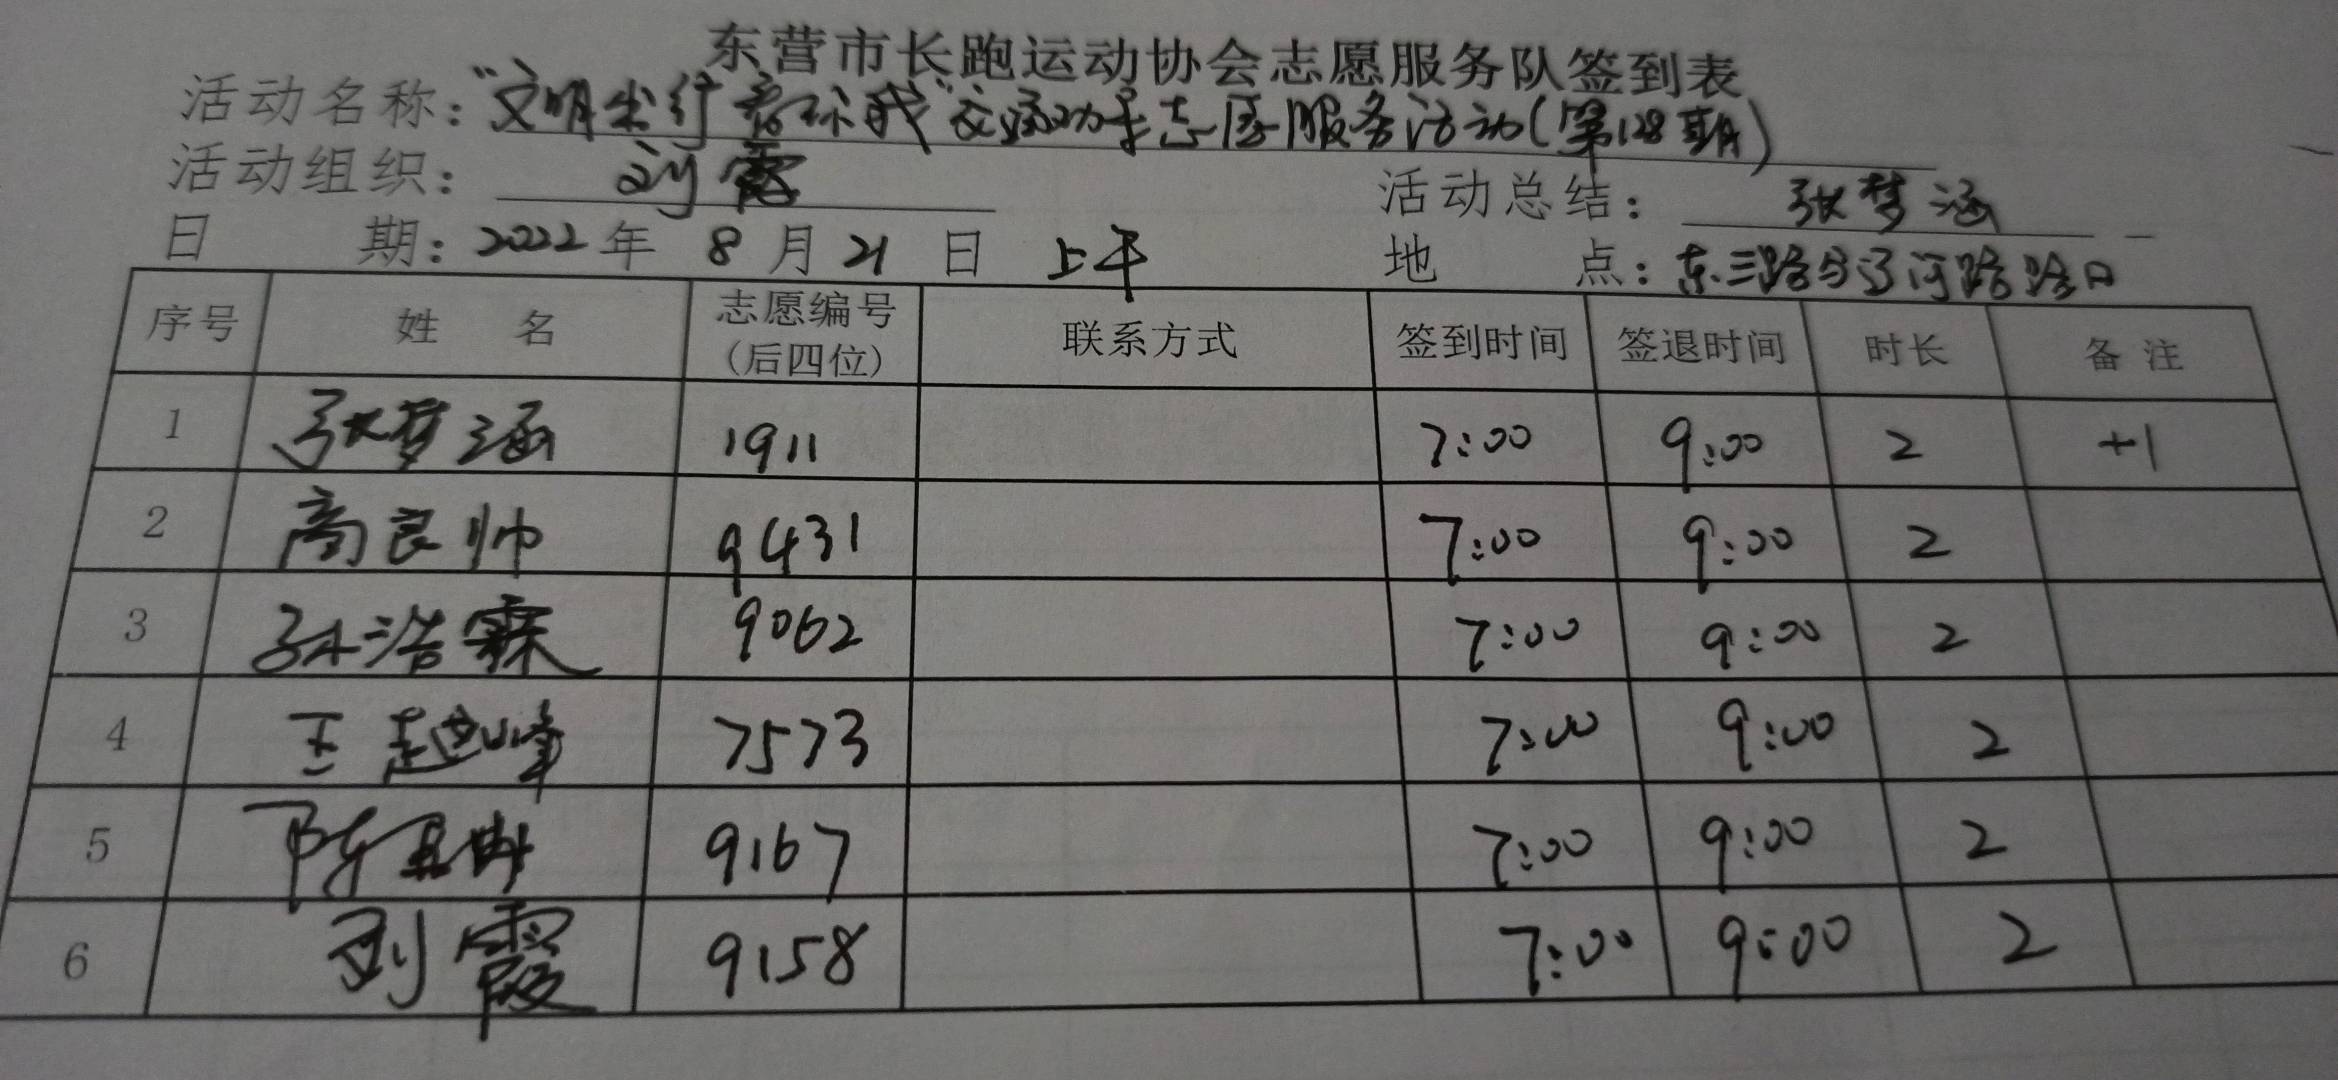 东营市长跑运动协会志愿服务队签到表
活动名称："文明出行 看你我"交通劝导志愿服务活动(第128期)
活动组织： 刘霞 活动总结： 张梦涵
日 期：2022年 8月21日 上午 地 点：东三路与辽河路路口
序号 姓 名 志愿编号(后四位) 联系方式 签到时间 签退时间 时长 备 注
1 张梦涵 1911 7:00 9:00 2 +1
2 高良帅 9431 7:00 9:00 2
3 孙浩霖 9062 7:00 9:00 2
4 王越峰 7573 7:00 9:00 2
5 陈 9167 7:00 9:00 2
6 刘霞 9158 7:00 9:00 2